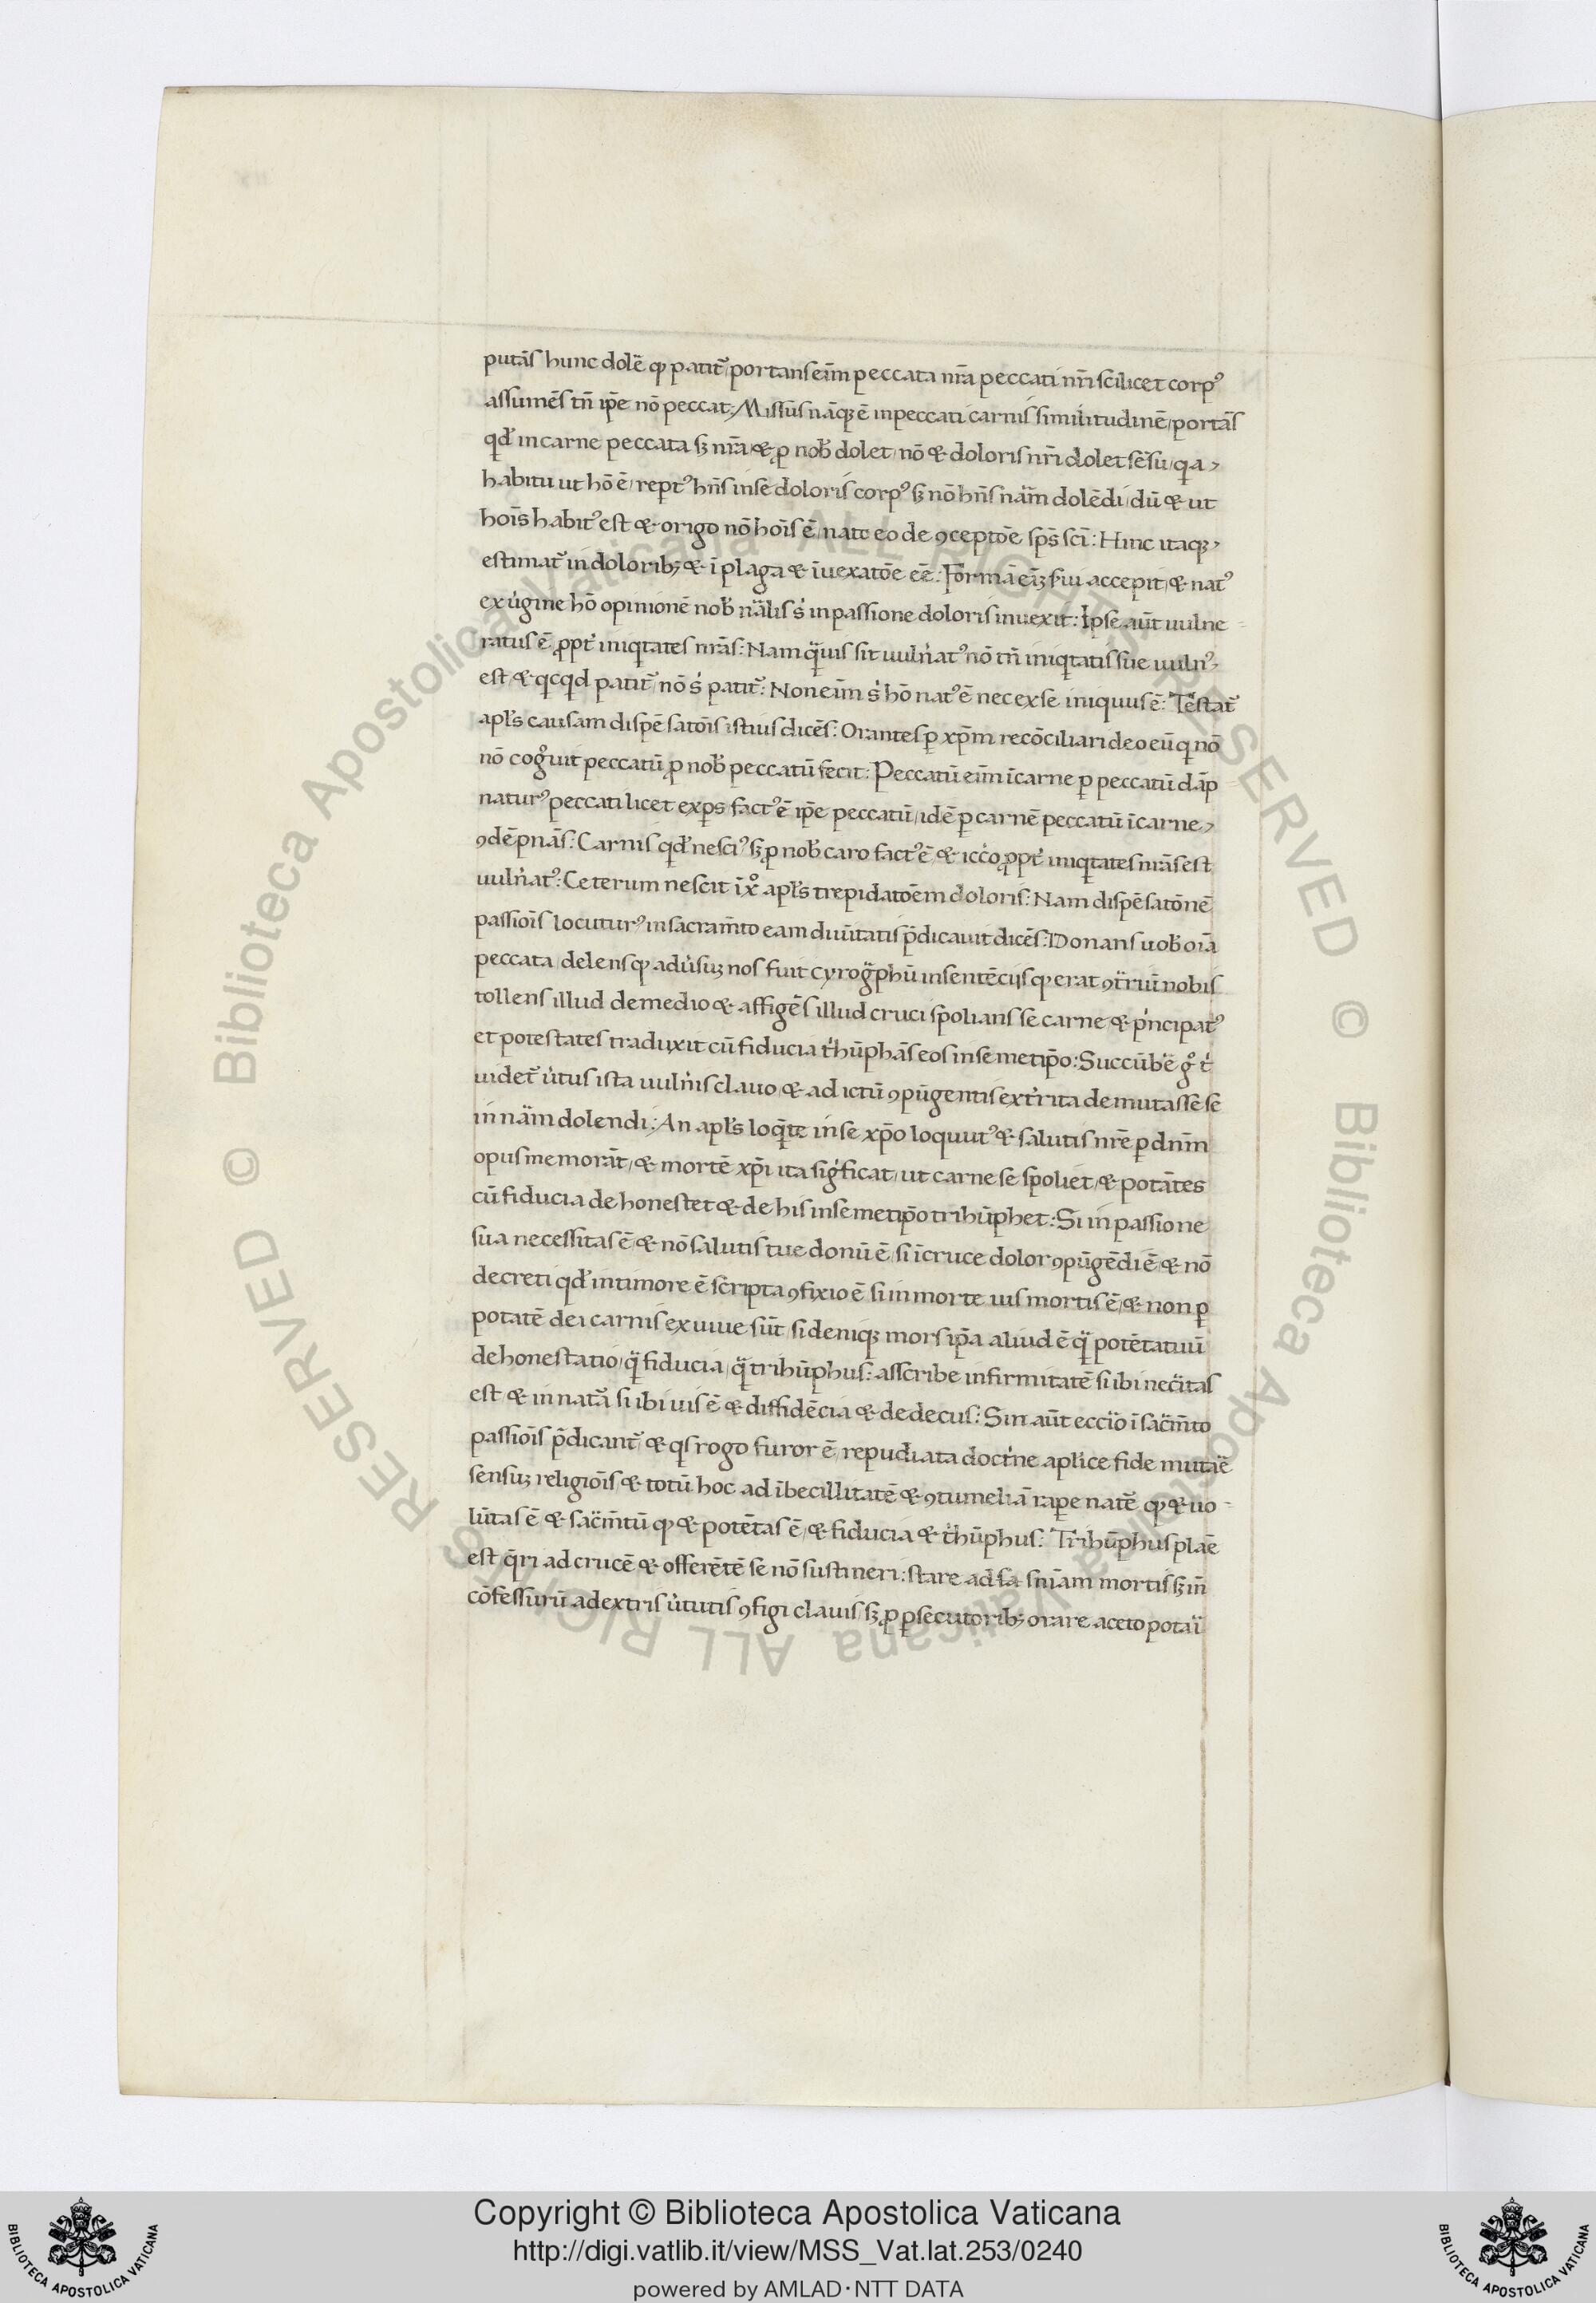 putãſ hunc dolẽ ꝙ patit᷑ portanſ eĩm peccata nr̃a peccati nr̃i ſcilicet corpꝰ
aſſumẽſ tñ ip̃e nõ peccat: Miſſuſ nãqꝫ ẽ in peccati carniſ ſimilitudinẽ portãſ
qd̓ in carne peccata ſꝫ nr̃a & ꝓ nob̓ dolet nõ & doloriſ nr̃i dolet ſẽſu q̃a
habitu ut hõ ẽ reptꝰ hñſ in ſe doloriſ corpꝰ ſꝫ nõ hñſ nãm dolẽdi dũ & ut
hoĩſ habitꝰ eſt & origo nõ hoĩſ ẽ nato eo de ꝯceptõe ſpſ̃ ſcĩ: Hinc itaqꝫ
eſtimat᷑ in doloribꝫ & ĩ plaga & ĩ uexatõe eẽ: Formã eĩꝫ ſ̓ui accepit & natꝰ
ex ũgine hõ opinionẽ nob̓ nãliſ ſ̓ in paſſione doloriſ inuexit: Ipſe aũt uulne
ratuſ ẽ ꝓpt̓ iniqtateſ nr̃aſ: Nam q̃uiſ ſit uuln̓atꝰ nõ tñ iniqtatiſ ſue uulnꝰ
eſt & qcqd patit᷑ nõ ſ̓ patit᷑: Non eĩm ſ̓ hõ natꝰ ẽ nec ex ſe iniquuſ ẽ: Teſtat᷑
apl̓ſ cauſam diſpẽſatõiſ iſtiuſ dicẽſ: Oranteſ ꝑ xp̃m recõciliari deo eũ q nõ
nõ cog̓uit peccatũ ꝓ nob̓ peccatũ fecit: Peccatũ eĩm ĩ carne ꝑ peccatũ dãp
naturꝰ peccati licet exꝑſ factꝰ ẽ ip̃e peccatũ idẽ ꝑ carnẽ peccatũ ĩ carne
ꝯdẽpnãſ: Carniſ qd̓ neſciꝰ ſꝫ ꝓ nob̓ caro factꝰ ẽ & icc̓o ꝓpt̓ iniqtateſ nr̃aſ eſt
uuln̓atꝰ: Ceterum neſcit ĩ xº apl̓ſ trepidatõem doloriſ: Nam diſpẽſatõnẽ
paſſiõiſ locuturꝰ in ſacram̃to eam diuĩtatiſ p̃dicauit dicẽſ: Donanſ uob̓ oĩa
peccata delenſ ꝙ adũſuꝫ noſ fuit cyrog̃phũ in ſentẽcijſ ꝙ erat ꝯt̃riũ nobiſ
tollenſ illud de medio & affigẽſ illud cruci ſpolianſ ſe carne & p̓ncipatꝰ
et poteſtateſ traduxit cũ fiducia t̓hũphãſ eoſ in ſemetip̃o: Succũb̓e g̊ t̓
uidet᷑ ũtuſ iſta uuln̓iſ clauo & ad ictũ ꝯpũgentiſ ext̓rita demutaſſe ſe
in nãm dolendi: An apl̓ſ loq̃te in ſe xp̃o loquutꝰ & ſalutiſ nr̃e ꝑ dnm̃
opuſ memorãt & mortẽ xp̃i ita ſig̓ficat ut carne ſe ſpoliet & potãteſ
cũ fiducia dehoneſtet & de hiſ in ſemetip̃o trihũphet: Si in paſſione
ſua neceſſitaſ ẽ & nõ ſalutiſ tue donũ ẽ ſi ĩ cruce dolor ꝯpũgẽdi ẽ & nõ
decreti qd̓ in timore ẽ ſcripta ꝯfixio ẽ ſi in morte uiſ mortiſ ẽ & non ꝑ
potatẽ dei carniſ exuuie ſũt ſi deniqꝫ morſ ip̃a aliud ẽ q̃ potẽtatuũ
dehoneſtatio q̃ fiducia q̃ trihũphuſ: aſſcribe infirmitatẽ ſi ibi nec̃itaſ
eſt & in nat̃a ſi ibi uiſ ẽ & diffidẽcia & dedecuſ: Sin aũt ecc̓io ĩ ſac̃m̃to
paſſiõiſ p̃dicant᷑ & qſ rogo furor ẽ repudiata doct̓ne apl̓ice fide mutãe
ſenſuꝫ religiõiſ & totũ hoc ad ĩbecillitatẽ & ꝯtumeliã raꝑe natẽ ꝙ & uo
lũtaſ ẽ & ſac̃m̃tũ ꝙ & potẽtaſ ẽ & fiducia & t̓hũphuſ: Trihũphuſ plãe
eſt q̃ri ad crucẽ & offerẽtẽ ſe nõ ſuſtineri: ſtare ad ſniam mortiſ ſꝫ iñ
cõfeſſurũ a dextriſ ũtutiſ ꝯfigi clauiſ ſꝫ ꝓ ꝑſecutoribꝫ orare aceto potãi
Copyright © Biblioteca Apostolica Vaticana
http://digi.vatlib.it/view/MSS_Vat.lat.253/0240
powered by AMLAD·NTT DATA